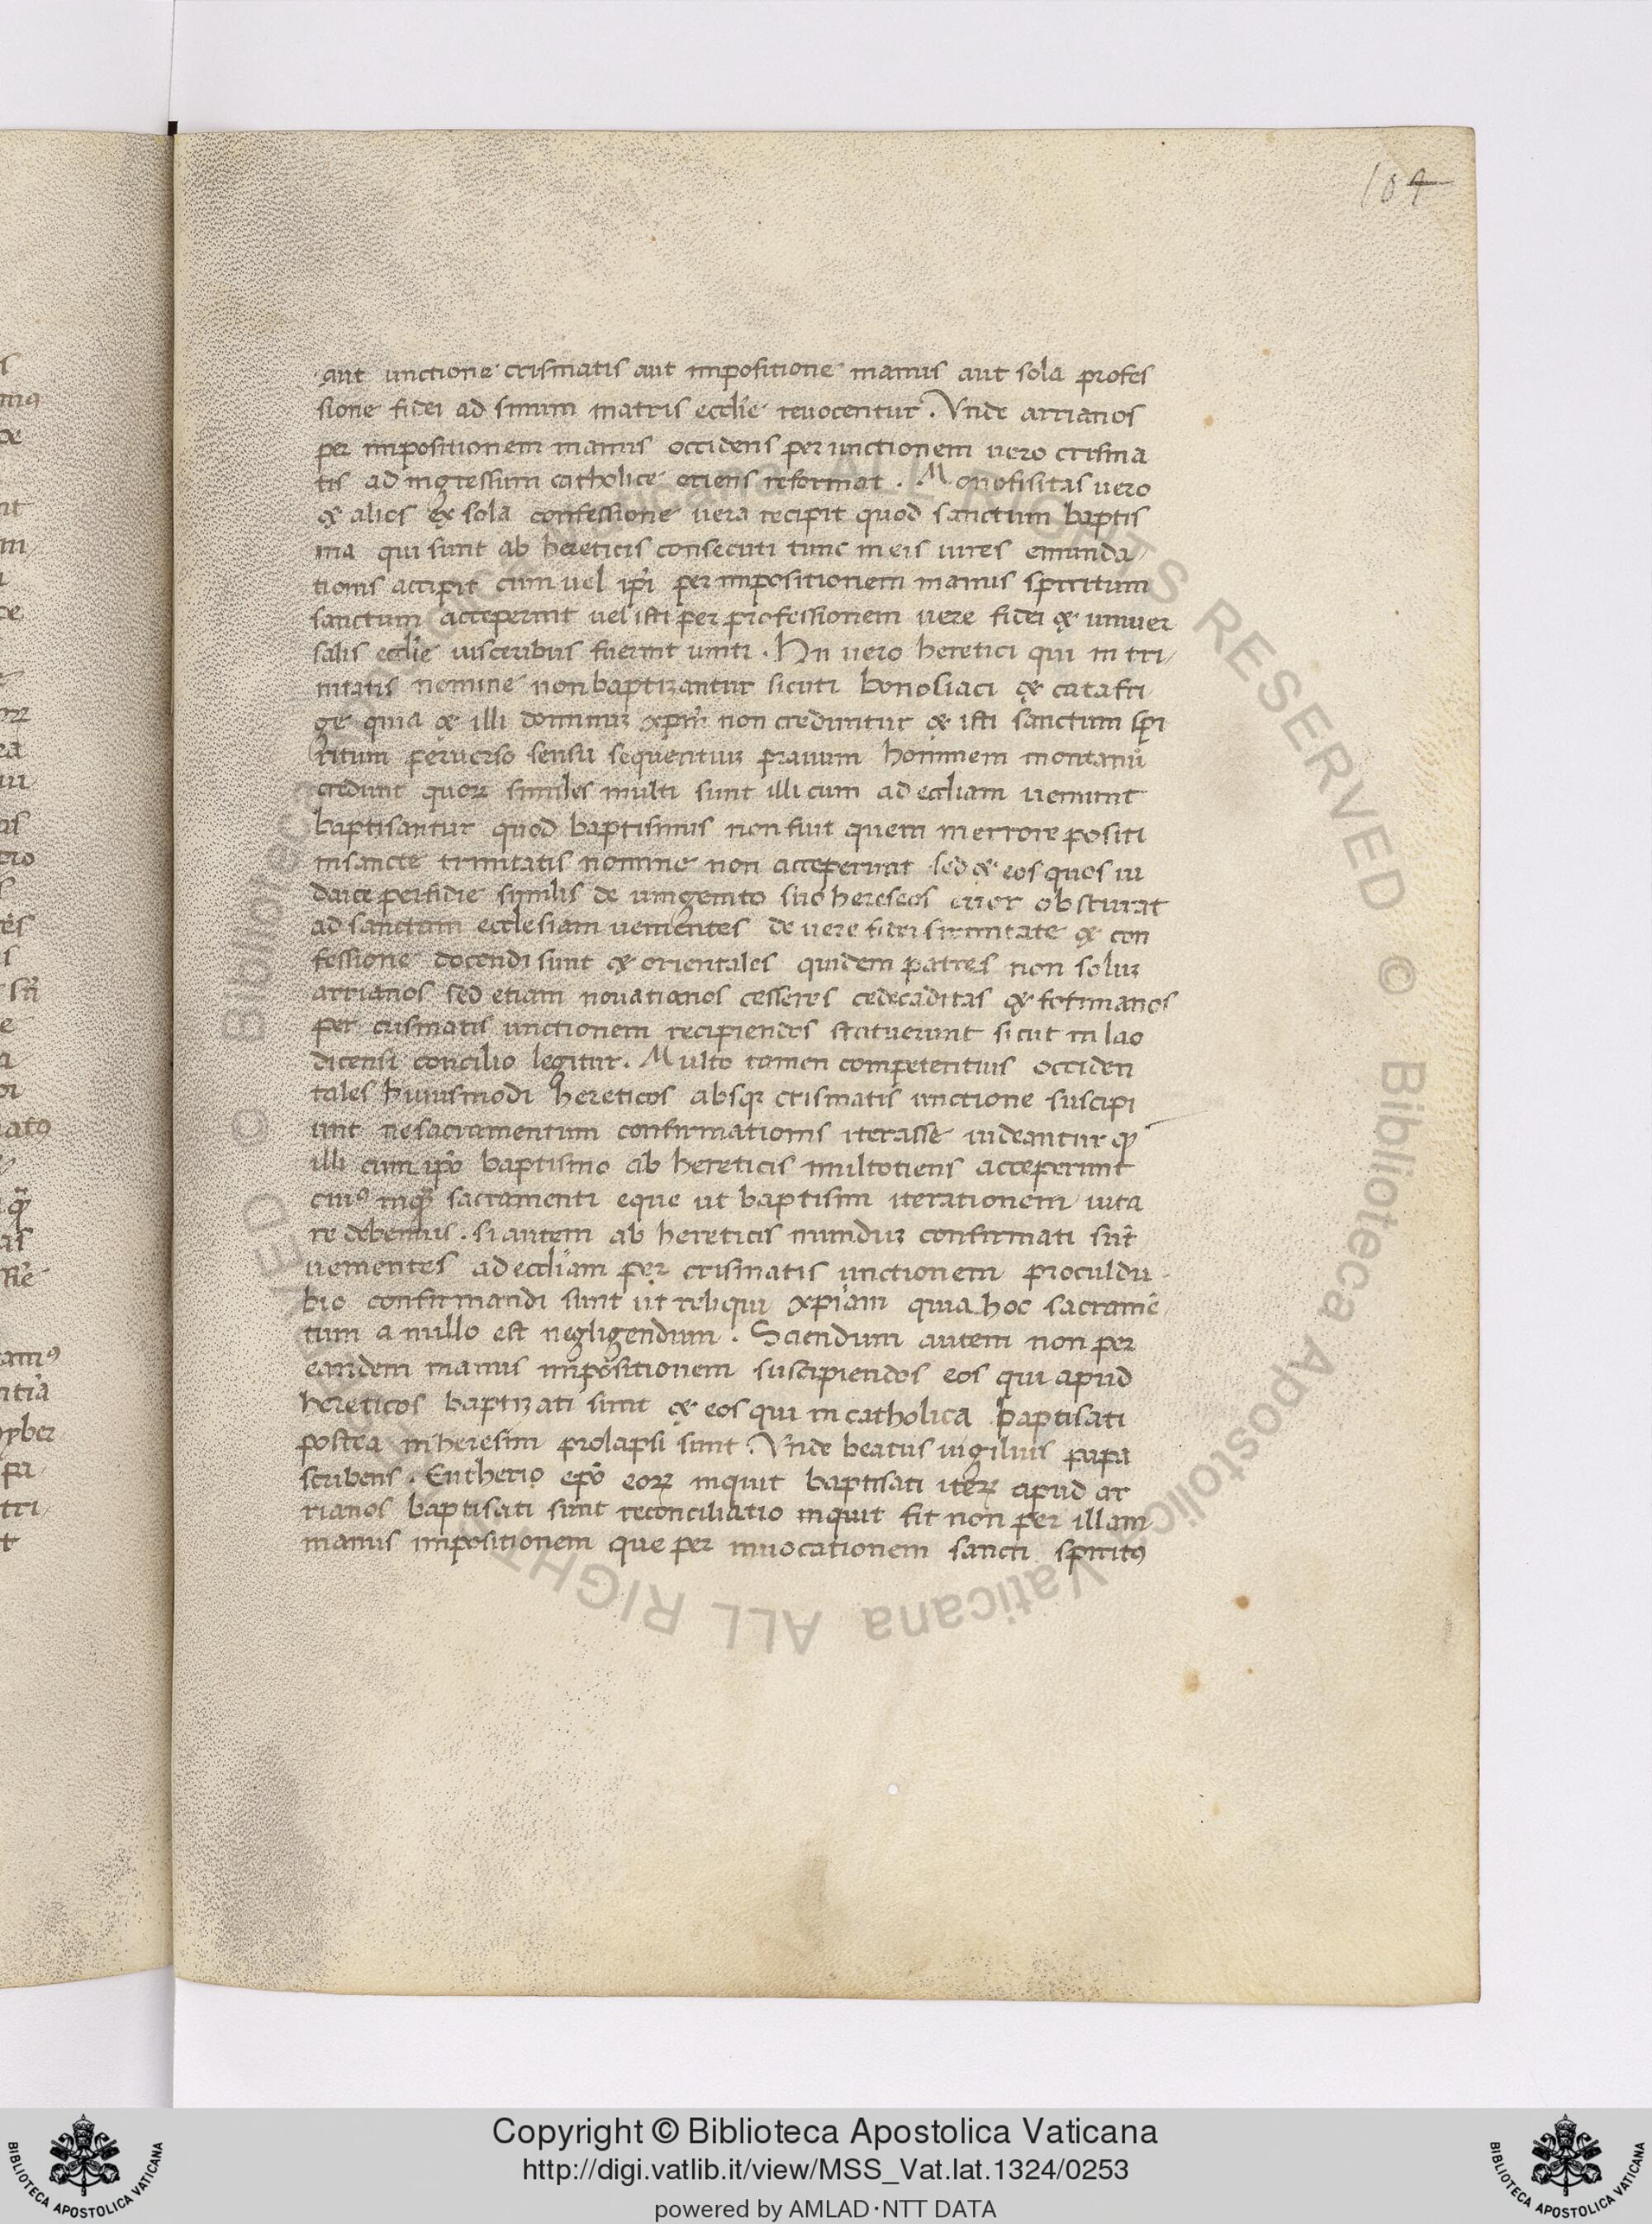 104
aut unctione crismatis aut impositione manus aut sola profes
sione fidei ad sinum matris ecclīe reuocentur. Vnde arrianos
per impositionem manus occidens per unctionem uero crisma
tis ad ingressum catholice oriens reformat. Monofisitas uero
& alios ex sola confessione uera recipit quod sanctum baptis
ma qui sunt ab hereticis consecuti tunc in eis uires emunda
tionis accipit cum uel ip̄i per impositionem manus spiritum
sanctum acceperint uel isti per professionem uere fidei & uniuer
salis ecclīe uisceribus fuerint uniti. Hii uero heretici qui in tri
nitatis nomine non baptizantur sicuti bonosiaci & catafri
ge quia & illi dominuz xpm̄ non creduntur & isti sanctum spi
ritum peruerso sensu sequentur prauum hominem montanū
credunt quoꝝ similes multi sunt illi cum ad eccliam ueniunt
baptisantur quod baptismus non fuit quem in errore positi
in sancte trinitatis nomine non acceperunt sed & eos quos iu
daice perfidie similis de unigenito suo hereseos error obscurat
ad sanctum ecclesiam uenientes de uere fidei sirinitate & con
fessione docendi sunt & orientales quidem patres non soluz
arrianos sed etiam nouatianos cesseres cedecaditas & fotinianos
per crismatis unctionem recipiendos statuerunt sicut in lao
dicensi concilio legitur. Multo tamen competentius occiden
tales huiusmodi hereticos absqꝫ crismatis unctione suscipi
unt ne sacramentum confirmationis iterasse uideantur qp
illi cum ip̄o baptismo ab hereticis multotiens acceperunt
cuiꝰ inqua̅ sacramenti eque ut baptismi iterationem uita
re debemus. si autem ab hereticis nunduz confirmati sūt
uenientes ad eccliam per crismatis unctionem proculdu
bio confirmandi sunt ut reliqui xpiam quia hoc sacramē
tum a nullo est negligendum. Sciendum autem non per
eandem manus impositionem suscipiendos eos qui apud
hereticos baptizati sunt & eos qui in catholica baptisati
postea in heresim prolapsi sunt. Vnde beatus uigilius papa
scribens. Eutherio ep̄o eoꝝ inquit baptisati iteꝝ apud ar
rianos baptisati sunt reconciliatio inquit fit non per illam
manus impositionem que per inuocationem sancti spiritꝰ
Copyright © Biblioteca Apostolica Vaticana
http://digi.vatlib.it/view/MSS_Vat.lat.1324/0253
powered by AMLAD·NTT DATA